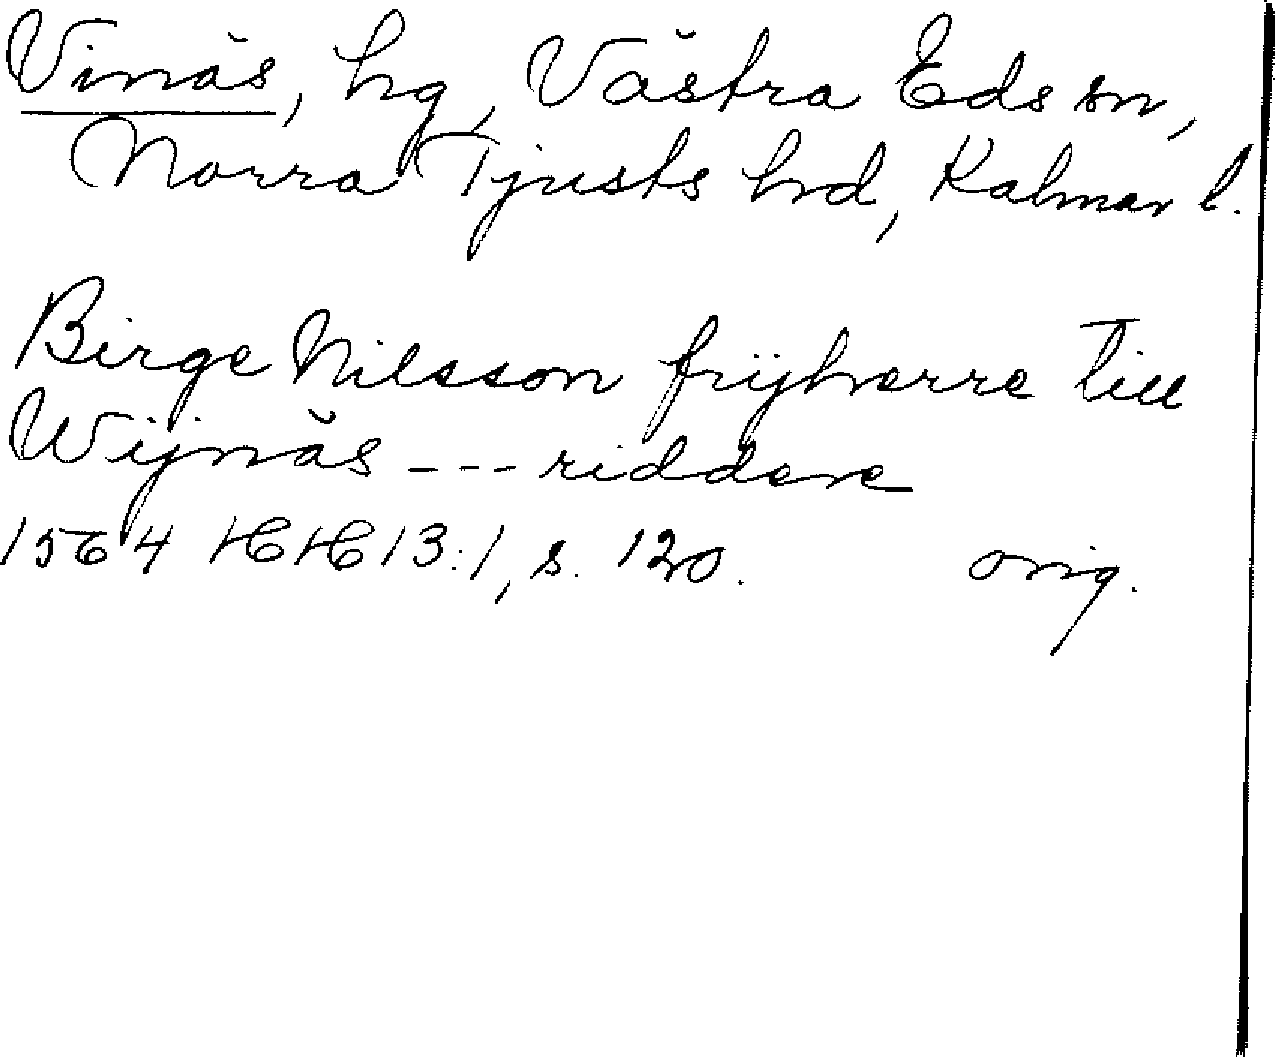 Vinäs, hg, Västra Eds sn,
Norra Tjusts hrd, Kalmar l.
Birge Nilsson frijherre till
Wijnäs --- riddere
1564 HH 13:1, s. 120. orig.